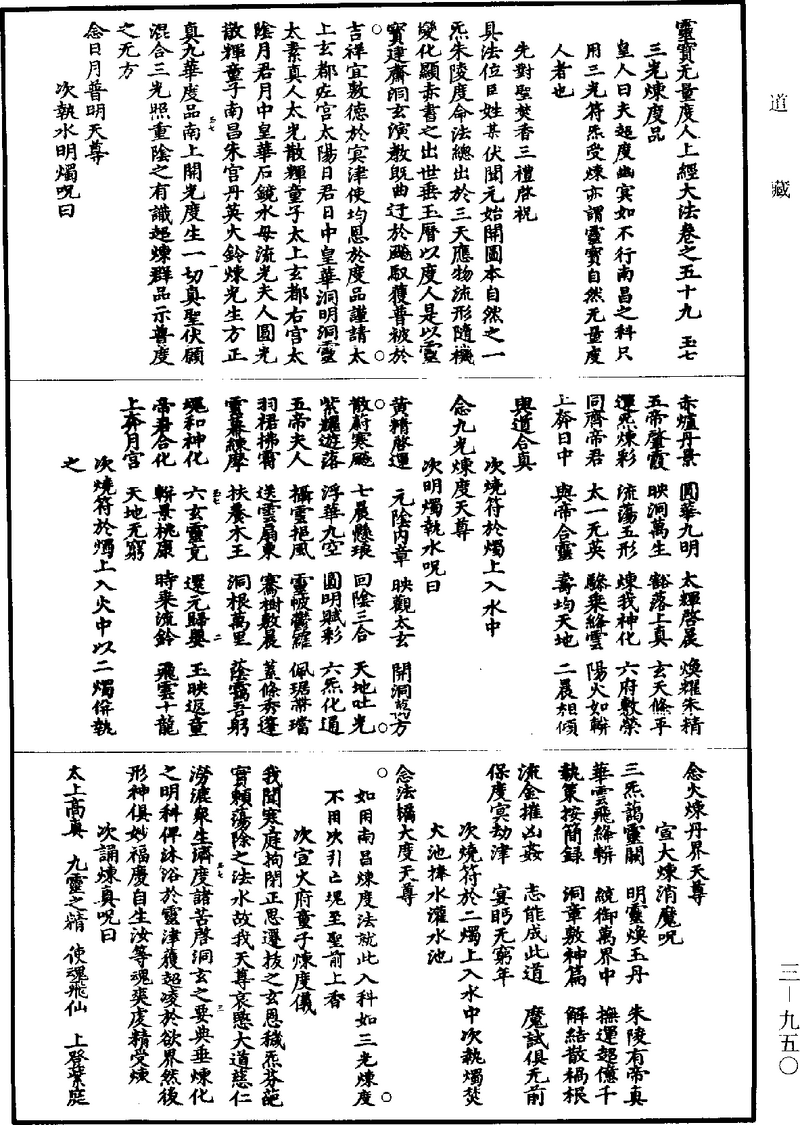 道藏
靈寶无量度人上經大法卷之五十九　玉七
三光煉度品
皇人曰夫超度幽冥如不行南昌之科只
用三光符炁受煉亦謂靈寶自然无量度
人者也
先對聖焚香三禮啓祝
具法位臣姓某伏聞元始開圖本自然之一
炁朱陵度命法總出於三天應物流形隨機
變化顯赤書之出世垂玉曆以度人是以靈
寶建齋洞玄演教既曲迂於飈馭獲普被於
吉祥宜敷德於冥津使均恩於度品謹請太
上玄都左宮太陽日君日中皇華洞明洞靈
太素真人太光散輝童子太上玄都右宮太
陰月君月中皇華石鏡水母流光夫人圓光
散輝童子南昌朱宮丹英火鈴煉光生方正
真九華度品南上開光度生一切真聖伏願
混合三光照重陰之有識超煉群品示普度
之无方
念日月普明天尊
次執水明燭呪曰
赤爐丹景　圓華九明　太輝啓晨　煥耀朱精
五帝肇霞　映洞萬生　豁落上真　玄天條平
運炁煉彩　流蕩五形　煉我神化　六府敷榮
同濟帝君　太一元英　驂乘絳雲　陽火如軿
上奔日中　與帝合靈　壽均天地　二晨相傾
與道合真
次燒符於燭上入水中
念九光煉度天尊
次明燭執水呪曰
黃精啓運　元陰內章　映觀太玄　開洞九方
散蔚寒飈　七晨懸琅　回陰三合　天地吐光
紫耀遊落　浮華九空　圓明賦彩　六炁化通
五帝夫人　攝靈挹風　靈帔鬱羅　佩琚帶璫
羽裙拂霄　送雲扇東　騫樹敷晨　蓋條秀蓬
雲幕練犀　扶養木王　洞根萬里　蔭靄吾躬
魂和神化　六玄靈充　還元歸嬰　玉映返童
帝君合化　軿景桃康　時乘流鈴　飛雲十龍
上奔月宮　天地无窮
次燒符於燭上入火中以二燭併執
之
念火煉丹界天尊
宣大煉消魔呪
三炁藹靈闕　明靈煥玉丹　朱陵有帝真
華雲飛絳軿　統御萬界中　撫運超億千
執策按簡錄　洞章敷神篇　解結散禍根
流金摧凶姦　志能成此道　魔試俱无前
保度冥劫津　宴眄无窮年
次燒符於二燭上入水中次執燭焚
大池捧水灌水池
念法橋大度天尊
如用南昌煉度法就此入科如三光煉度
不用次引亡魂至聖前上香
次宣火府童子煉度儀
我聞寒庭拘閉正思遷拔之玄恩穢炁芬葩
實賴蕩除之法水故我天尊哀愍大道慈仁
澇漉衆生濟度諸苦啓洞玄之要典垂煉化
之明科俾沐浴於靈津獲超凌於欲界然後
形神俱妙福慶自生汝等魂爽虔精受煉
次誦煉真呪曰
太上高真　九靈之精　使魂飛仙　上登紫庭
三－九五〇